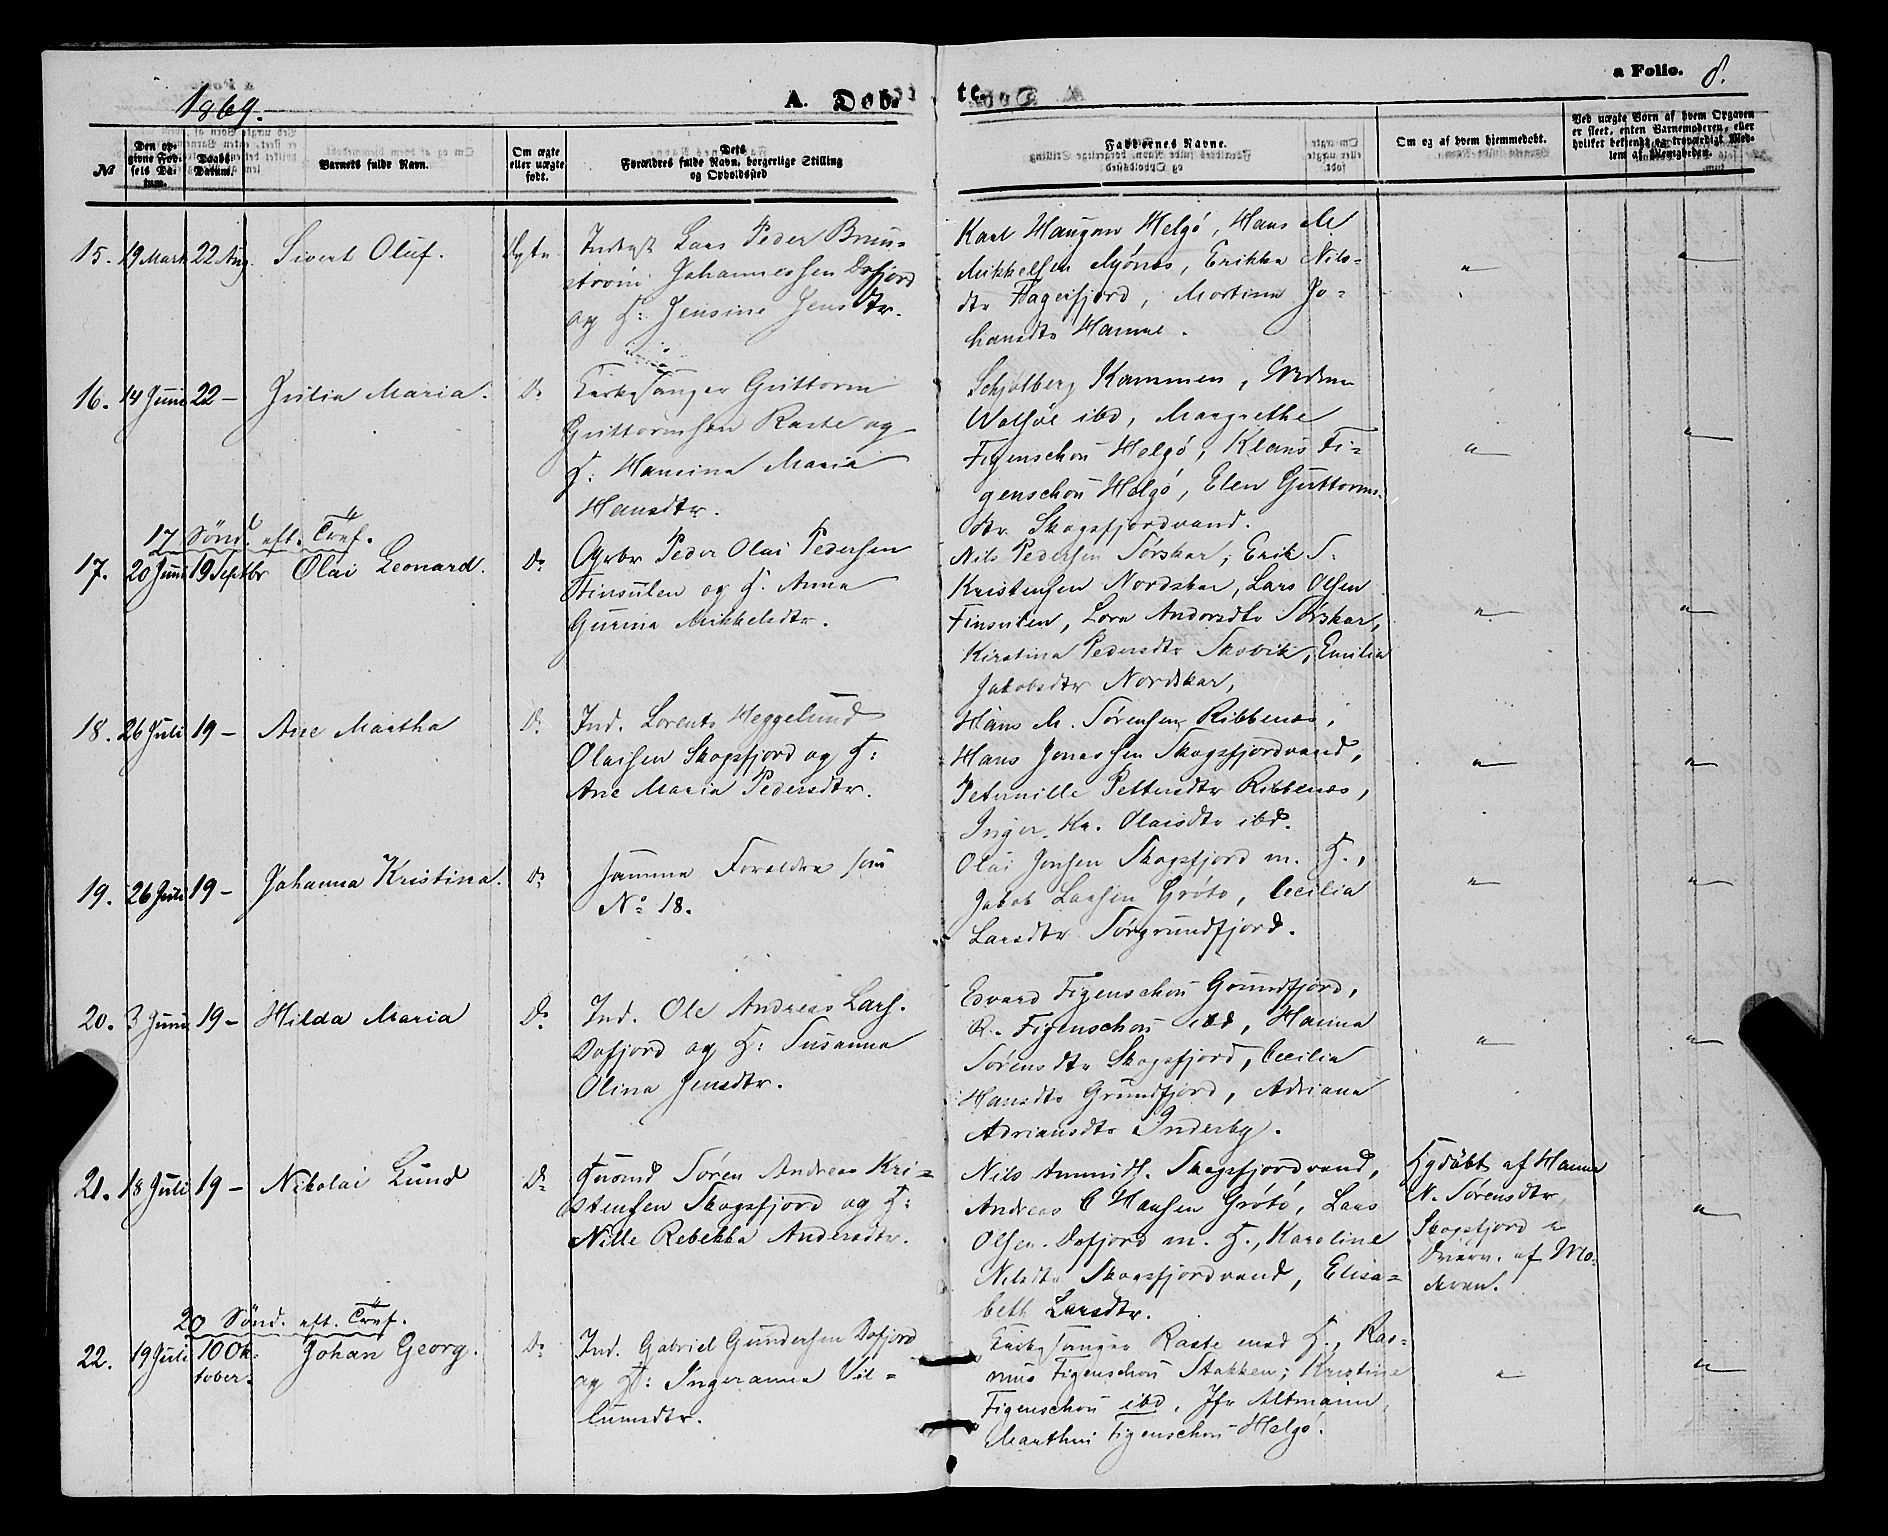 1869.
A. Døbte.
a Folio. 8.
№
Den opgivne Fødsels Datum.
Daabs Datum.
Barnets fulde Navn.
Om ægte eller uægte født.
Dets Forældres fulde Navn, borgerlige Stilling og Opholdssted
Faddernes Navne.
Om og af hvem hjemmedøbt.
Ved uægte Børn af hvem Opgaven er skeet, enten Barnemoderen, eller hvilket bekjendt og troværdigt Medlem af Menigheden.
15. 19 Marts 22 Aug. Sivert Oluf. Ægte
Inderst Lars Peder Brun-
strøm Johannessen Dafjord
og H: Jensine Jensdtr.
Karl Haugan Helgø, Hans M
Mikkelsen Mjønes, Erikka Nils-
dtr Fagerfjord, Mortina Jo-
hansdtr Hamre.
16. 14 Juni 22 – Julia Maria. Do
Kirkesanger Guttorm
Guttormsen Raste og
H: Hansina Maria
Hansdtr.
Schjølberg Kammen,
ibd, Margrethe
Figenschou Helgø, Klaus Fi-
genschou Helgø, Elen Guttorms-
dtr Skogsfjordvand.
17 Sønd. eft. Tref.
17. 20 Juni 19 Septbr Olai Leonard. Do
Gbr Peder Olai Pedersen
Finsulen og H. Anna
Gurina Mikkelsdtr.
Nils Pedersen Sørskar, Erik S.
Kristensen Nordskar, Lars Olsen
Finsulen, Lova Andersdtr Sørskar,
Kirstina Pedersdtr Skovik, Emilia
Jakobsdtr Nordskar,
18. 26 Juli 19 – Ane Martha Do
Ind. Lorents Heggelund
Olaisen Skogsfjord og H:
Ane Maria Pedersdtr.
Hans M. Sørensen Ribbenes,
Hans Jonassen Skogsfjordvand,
Petternille Pettersdtr Ribbenes,
Inger Kr. Olaisdtr ibd.
19. 26 Juli 19 – Johanna Kristina. Do
Samme Foraldre som
No 18.
Olai Jensen Skogsfjord m. H.,
Jakob Larsen Grøtø, Cecilia
Larsdtr Sørgrundfjord.
20. 3 Juni 19 – Hilda Maria Do
Ind. Ole Andreas Lars.
Dafjord og H: Susanna
Olina Jensdtr.
Edvard Figenschou Grundfjord,
R. Figenschou ibd, Hanna
Sørensdtr Skogsfjord, Cecilia
Hansdtr Grundfjord, Adriana
Adriansdtr Inderby.
21. 18 Juli 19 – Nikolai Lund Do
Husmd Søren Andreas Kri-
stensen Skogsfjord og H:
Nille Rebekka Andersdtr.
Nils Skogsfjordvand,
Andreas C Hansen Grøtø, Lars
Olsen Dafjord m. H., Karoline
Nilsdtr Skogsfjordvand, Elisa-
beth Larsdtr.
Hjdøbt af Hanna
N. Sørensdtr
Skogsfjord
af Mo-
deren.
20 Sønd. eft. Tref.
22. 19 Juli 10 Ok-
tober. Johan Georg. Do
Ind. Gabriel Gundersen Dafjord
og H: Ingeranna Vil-
lumsdtr.
Kirkesanger Raste med H., Ras-
mus Figenschou Stakken, Kristine
Figenschou ibd, Jfr Altmann
Marthin Figenschou Helgø.